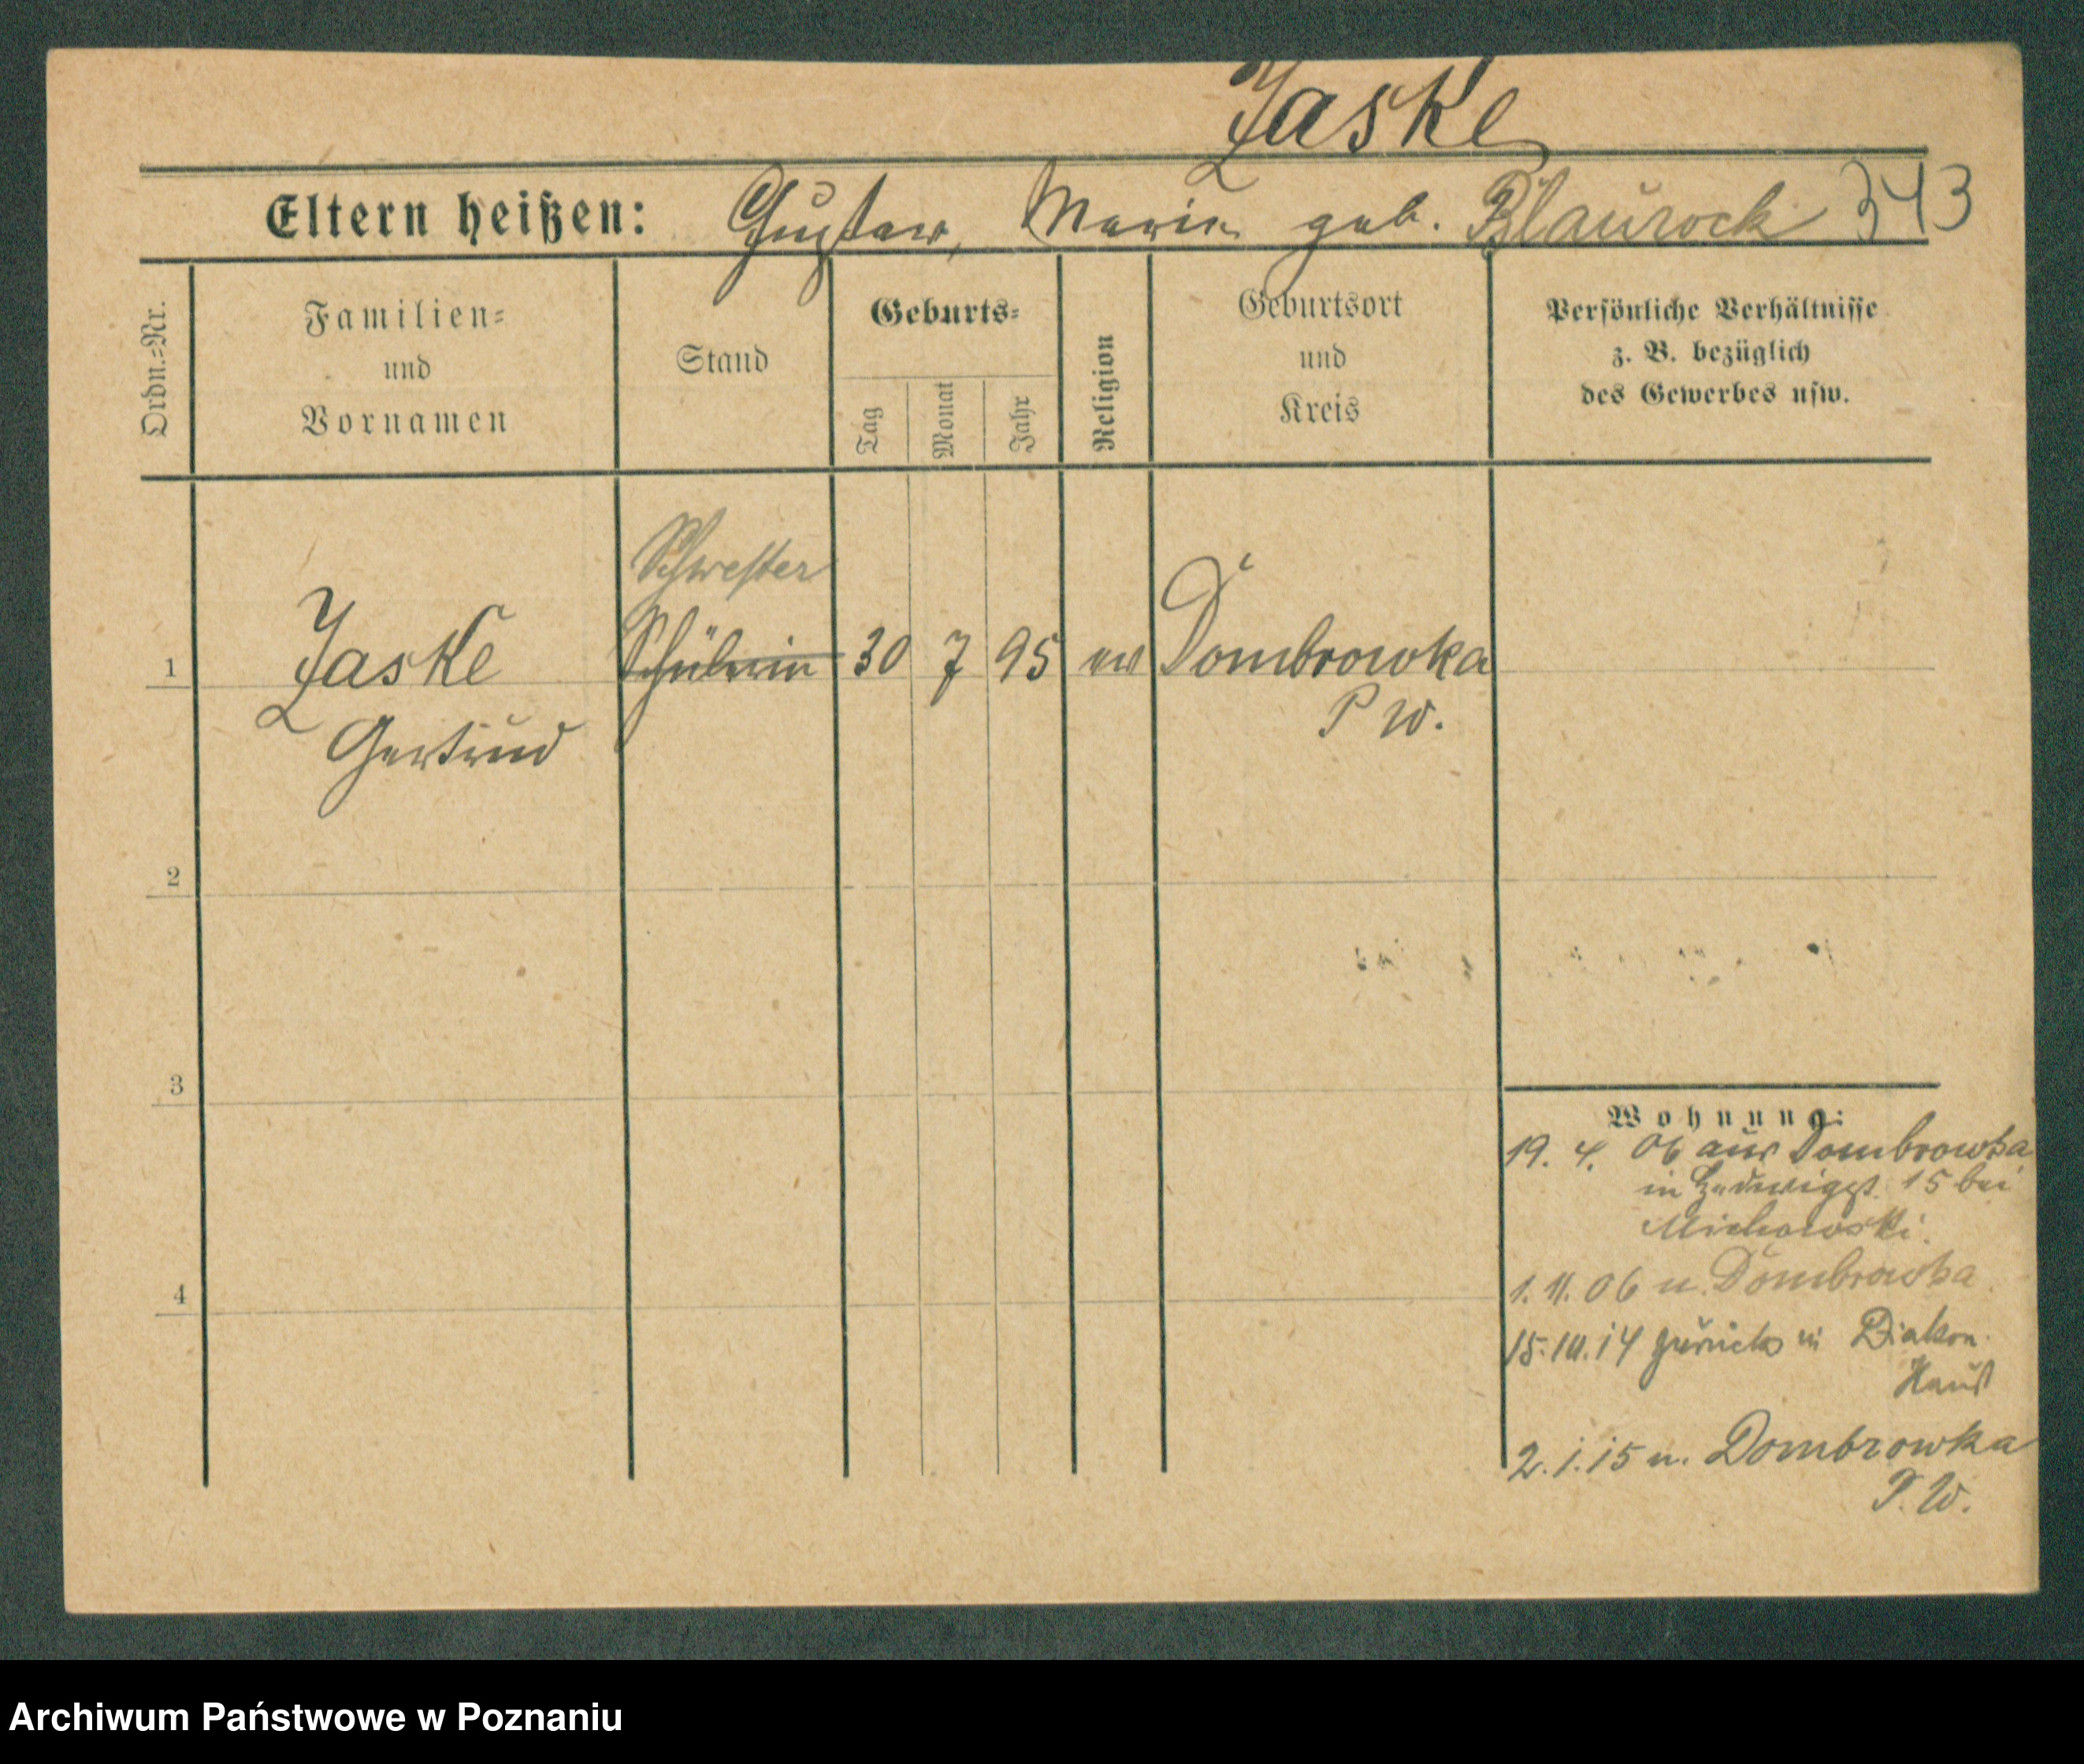 Jaske
Eltern heißen: Gustav, Marie geb. Blaurock 343
Ordn.-Nr.
Familien-
und
Vornamen
Stand
Geburts-
Tag
Monat
Jahr
Religion
Geburtsort
und
Kreis
Persönliche Verhältnisse
z. B. bezüglich
des Gewerbes usw.
Schwester
1 Jaske Schülerin 30 7 95 ev Dombrowka
Gertrud P W.
2
3
4
Wohnung:
19. 4. 06 aus Dombrowka
in 15 bei
1. 11. 06 n. Dombrowka
15.10.14 zurück in Diakon.
Haus
2.1.15 n. Dombrowka
P. W.
Archiwum Państwowe w Poznaniu